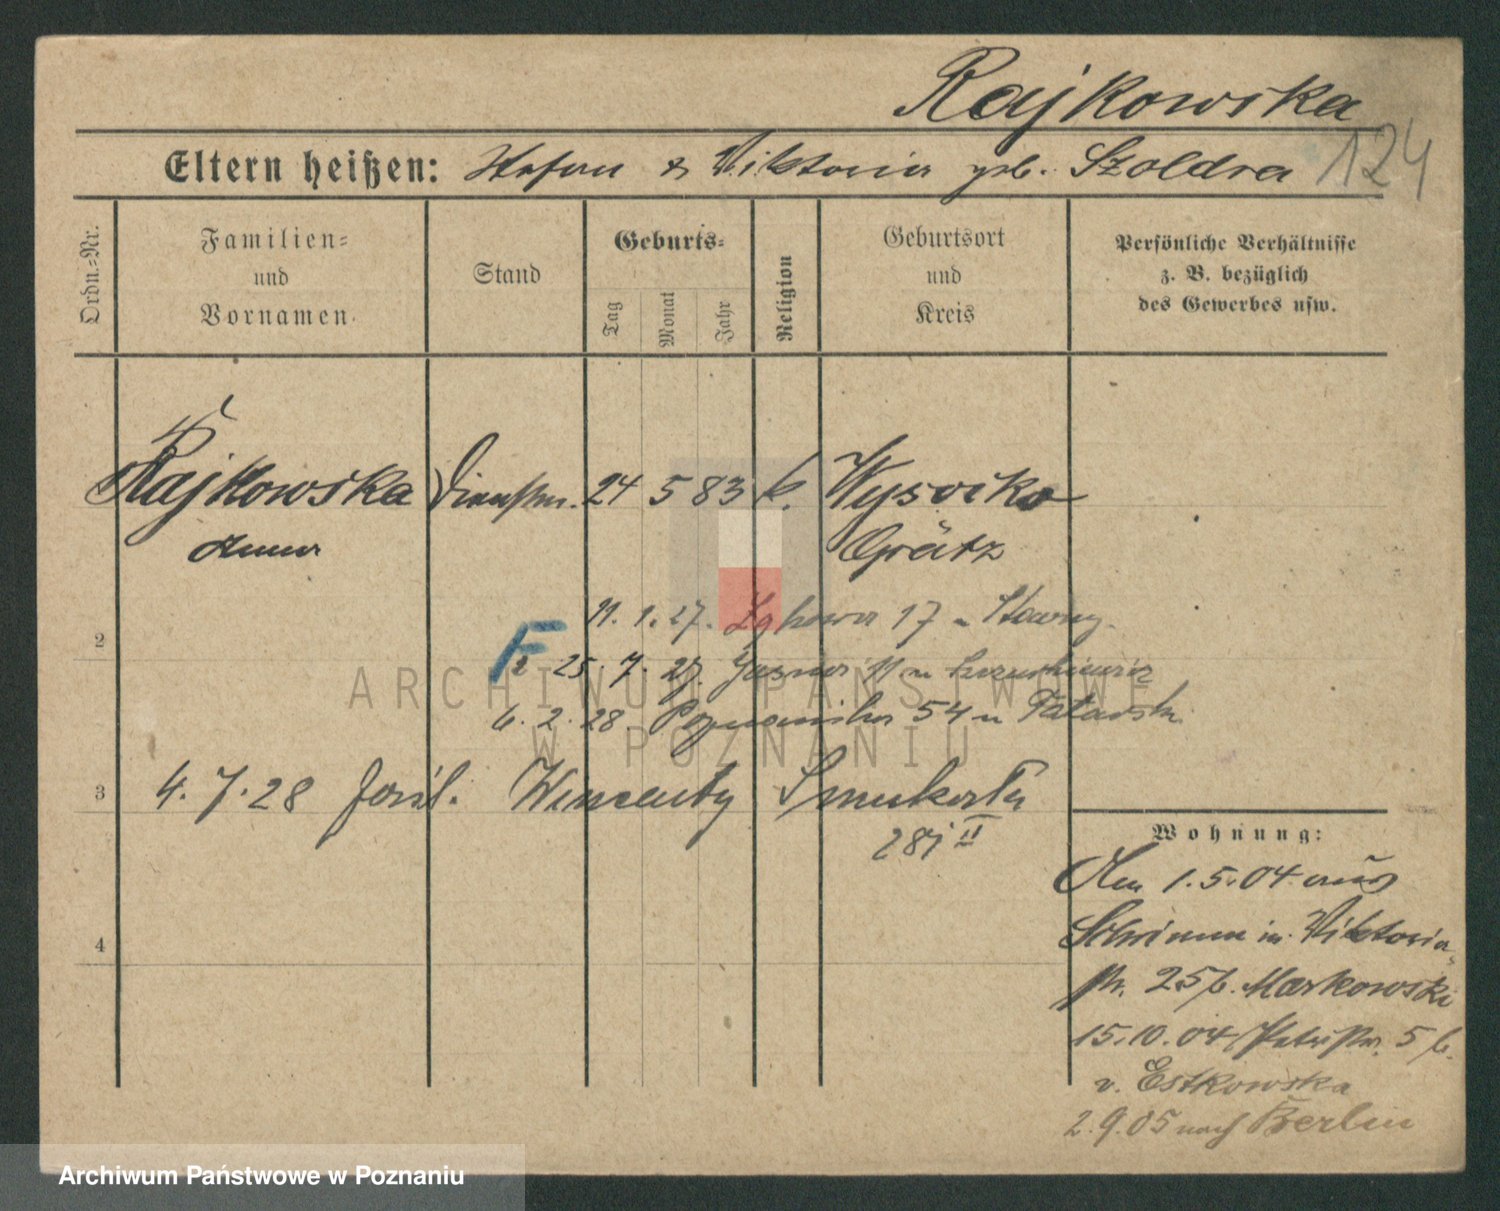 Rajkowska
124
Eltern heißen: Stefan & Viktoria geb. Szoldra
Ordn.-Nr.
Familien-
und
Vornamen.
Stand
Geburts-
Tag
Monat
Jahr
Religion
Geburtsort
und
Kreis
Persönliche Verhältnisse
z. B. bezüglich
des Gewerbes usw.
Rajkowska Dienstm. 24 5 83 k. Wysocko
Anna Grätz
11. 1. 27. 17
2
F
2 25. 7. 27. Jasna 11
ARCHIWUM PAŃSTWOWE
6. 2. 28. 54
W POZNANIU
3
4. 7. 28 Wincenty
28j II
Wohnung:
Am 1.5.04 aus
Schrimm in Viktoria
str. 25 b. Markowski
15.10.04 Petristr. 5 b.
v. Estkowska
2.9.05 nach Berlin
4
Archiwum Państwowe w Poznaniu